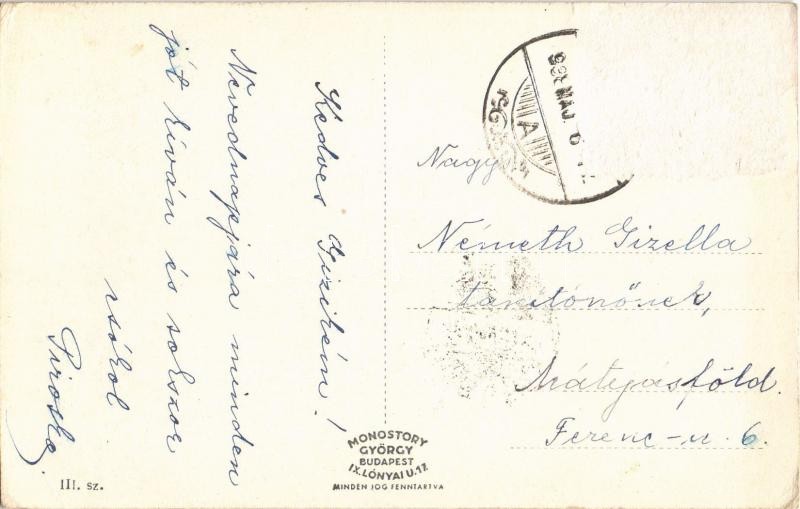 Kedves Gizikém!
Nevednapjára minden
jót kíván és sokszor
csókol
Piroska.
936 MÁJ. 6
A
Nagys
Németh Gizella
tanítónőnek,
Mátyásföld.
Ferenc-u. 6.
MONOSTORY
GYÖRGY
BUDAPEST
IX. LÓNYAI U. 17.
MINDEN JOG FENNTARTVA
III. sz.